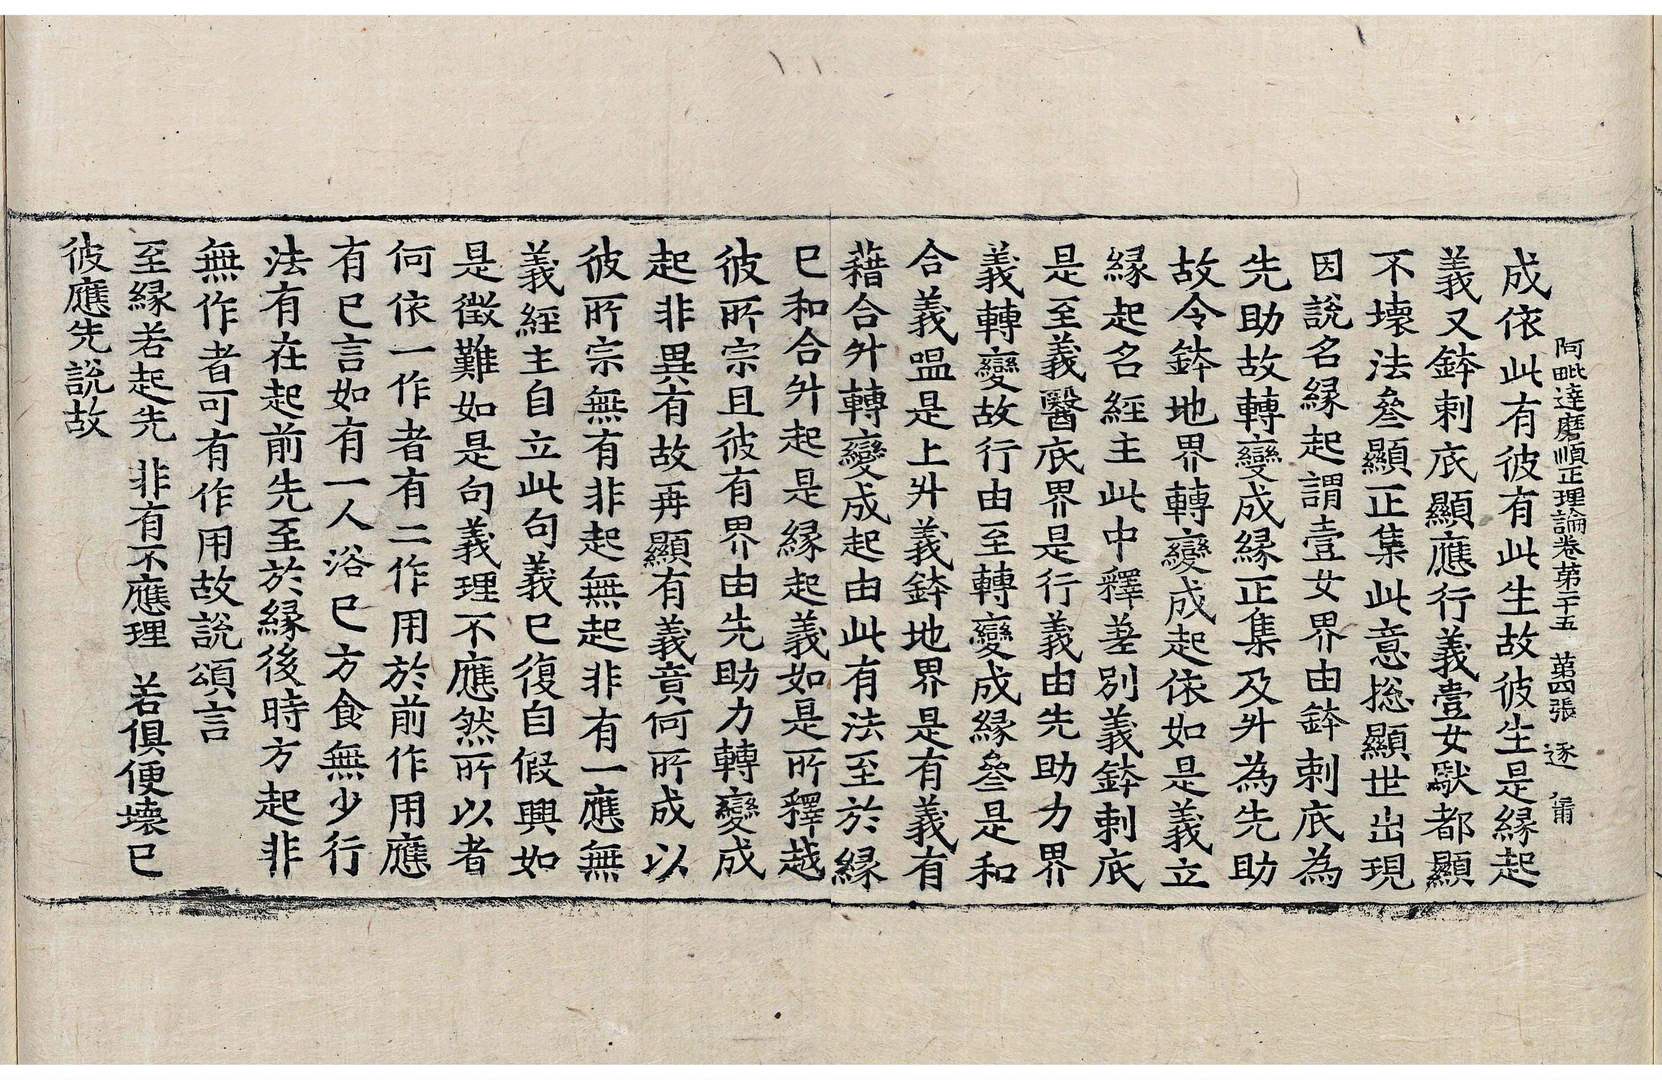 阿毗達磨順正理論卷第二十五　第四張　逐
成依此有彼有此生故彼生是緣起
義又鉢剌底顯應行義壹女獸都顯
不壞法叄顯正集此意揔顯世出現
因說名緣起謂壹女界由鉢剌底為
先助故轉變成緣正集及升為先助
故令鉢地界轉變成起依如是義立
緣起名經主此中釋差別義鉢剌底
是至義醫底界是行義由先助力界
義轉變故行由至轉變成緣叄是和
合義嗢是上升義鉢地界是有義有
藉合升轉變成起由此有法至於緣
已和合升起是緣起義如是所釋越
彼所宗且彼有界由先助力轉變成
起非異有故再顯有義竟何所成以
彼所宗無有非起無起非有一應無
義經主自立此句義已復自假興如
是徵難如是句義理不應然所以者
何依一作者有二作用於前作用應
有已言如有一人浴已方食無少行
法有在起前先至於緣後時方起非
無作者可有作用故說頌言
至緣若起先　非有不應理　若俱便壞已
彼應先說故